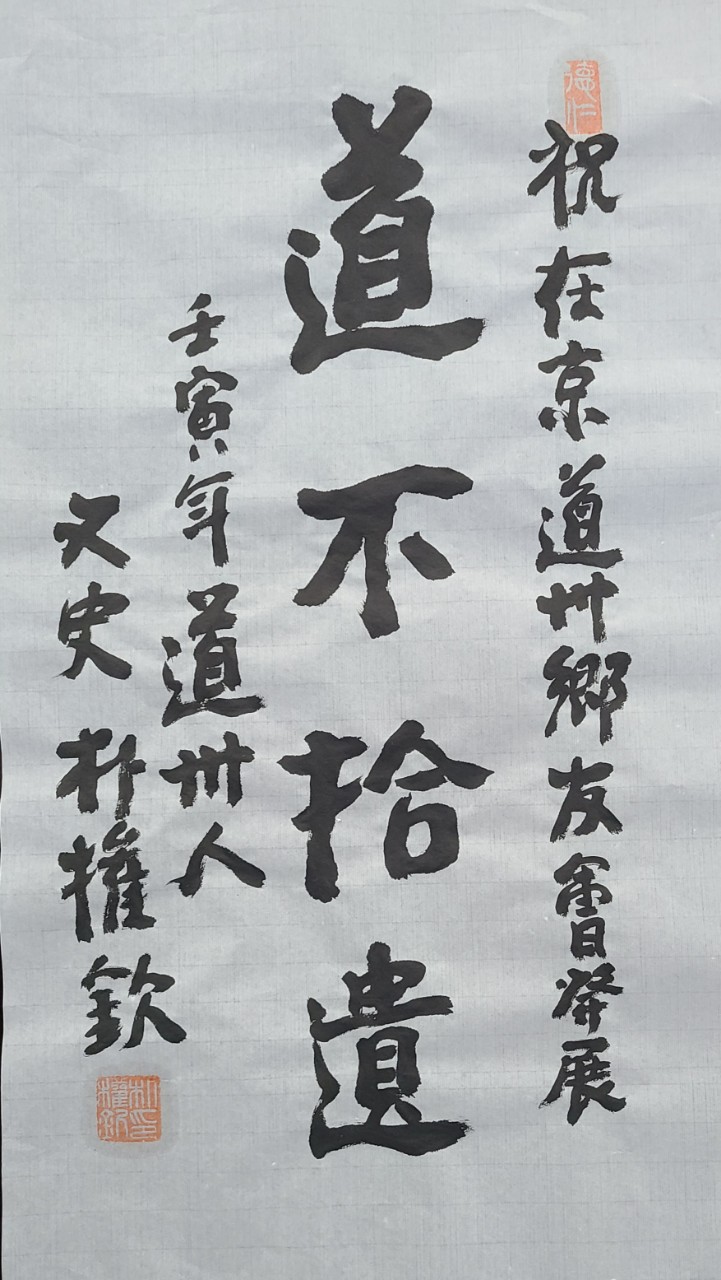 德仁
祝在京道州鄉友會發展
道不拾遺
壬寅年道州人
又史 朴權欽
朴權欽印